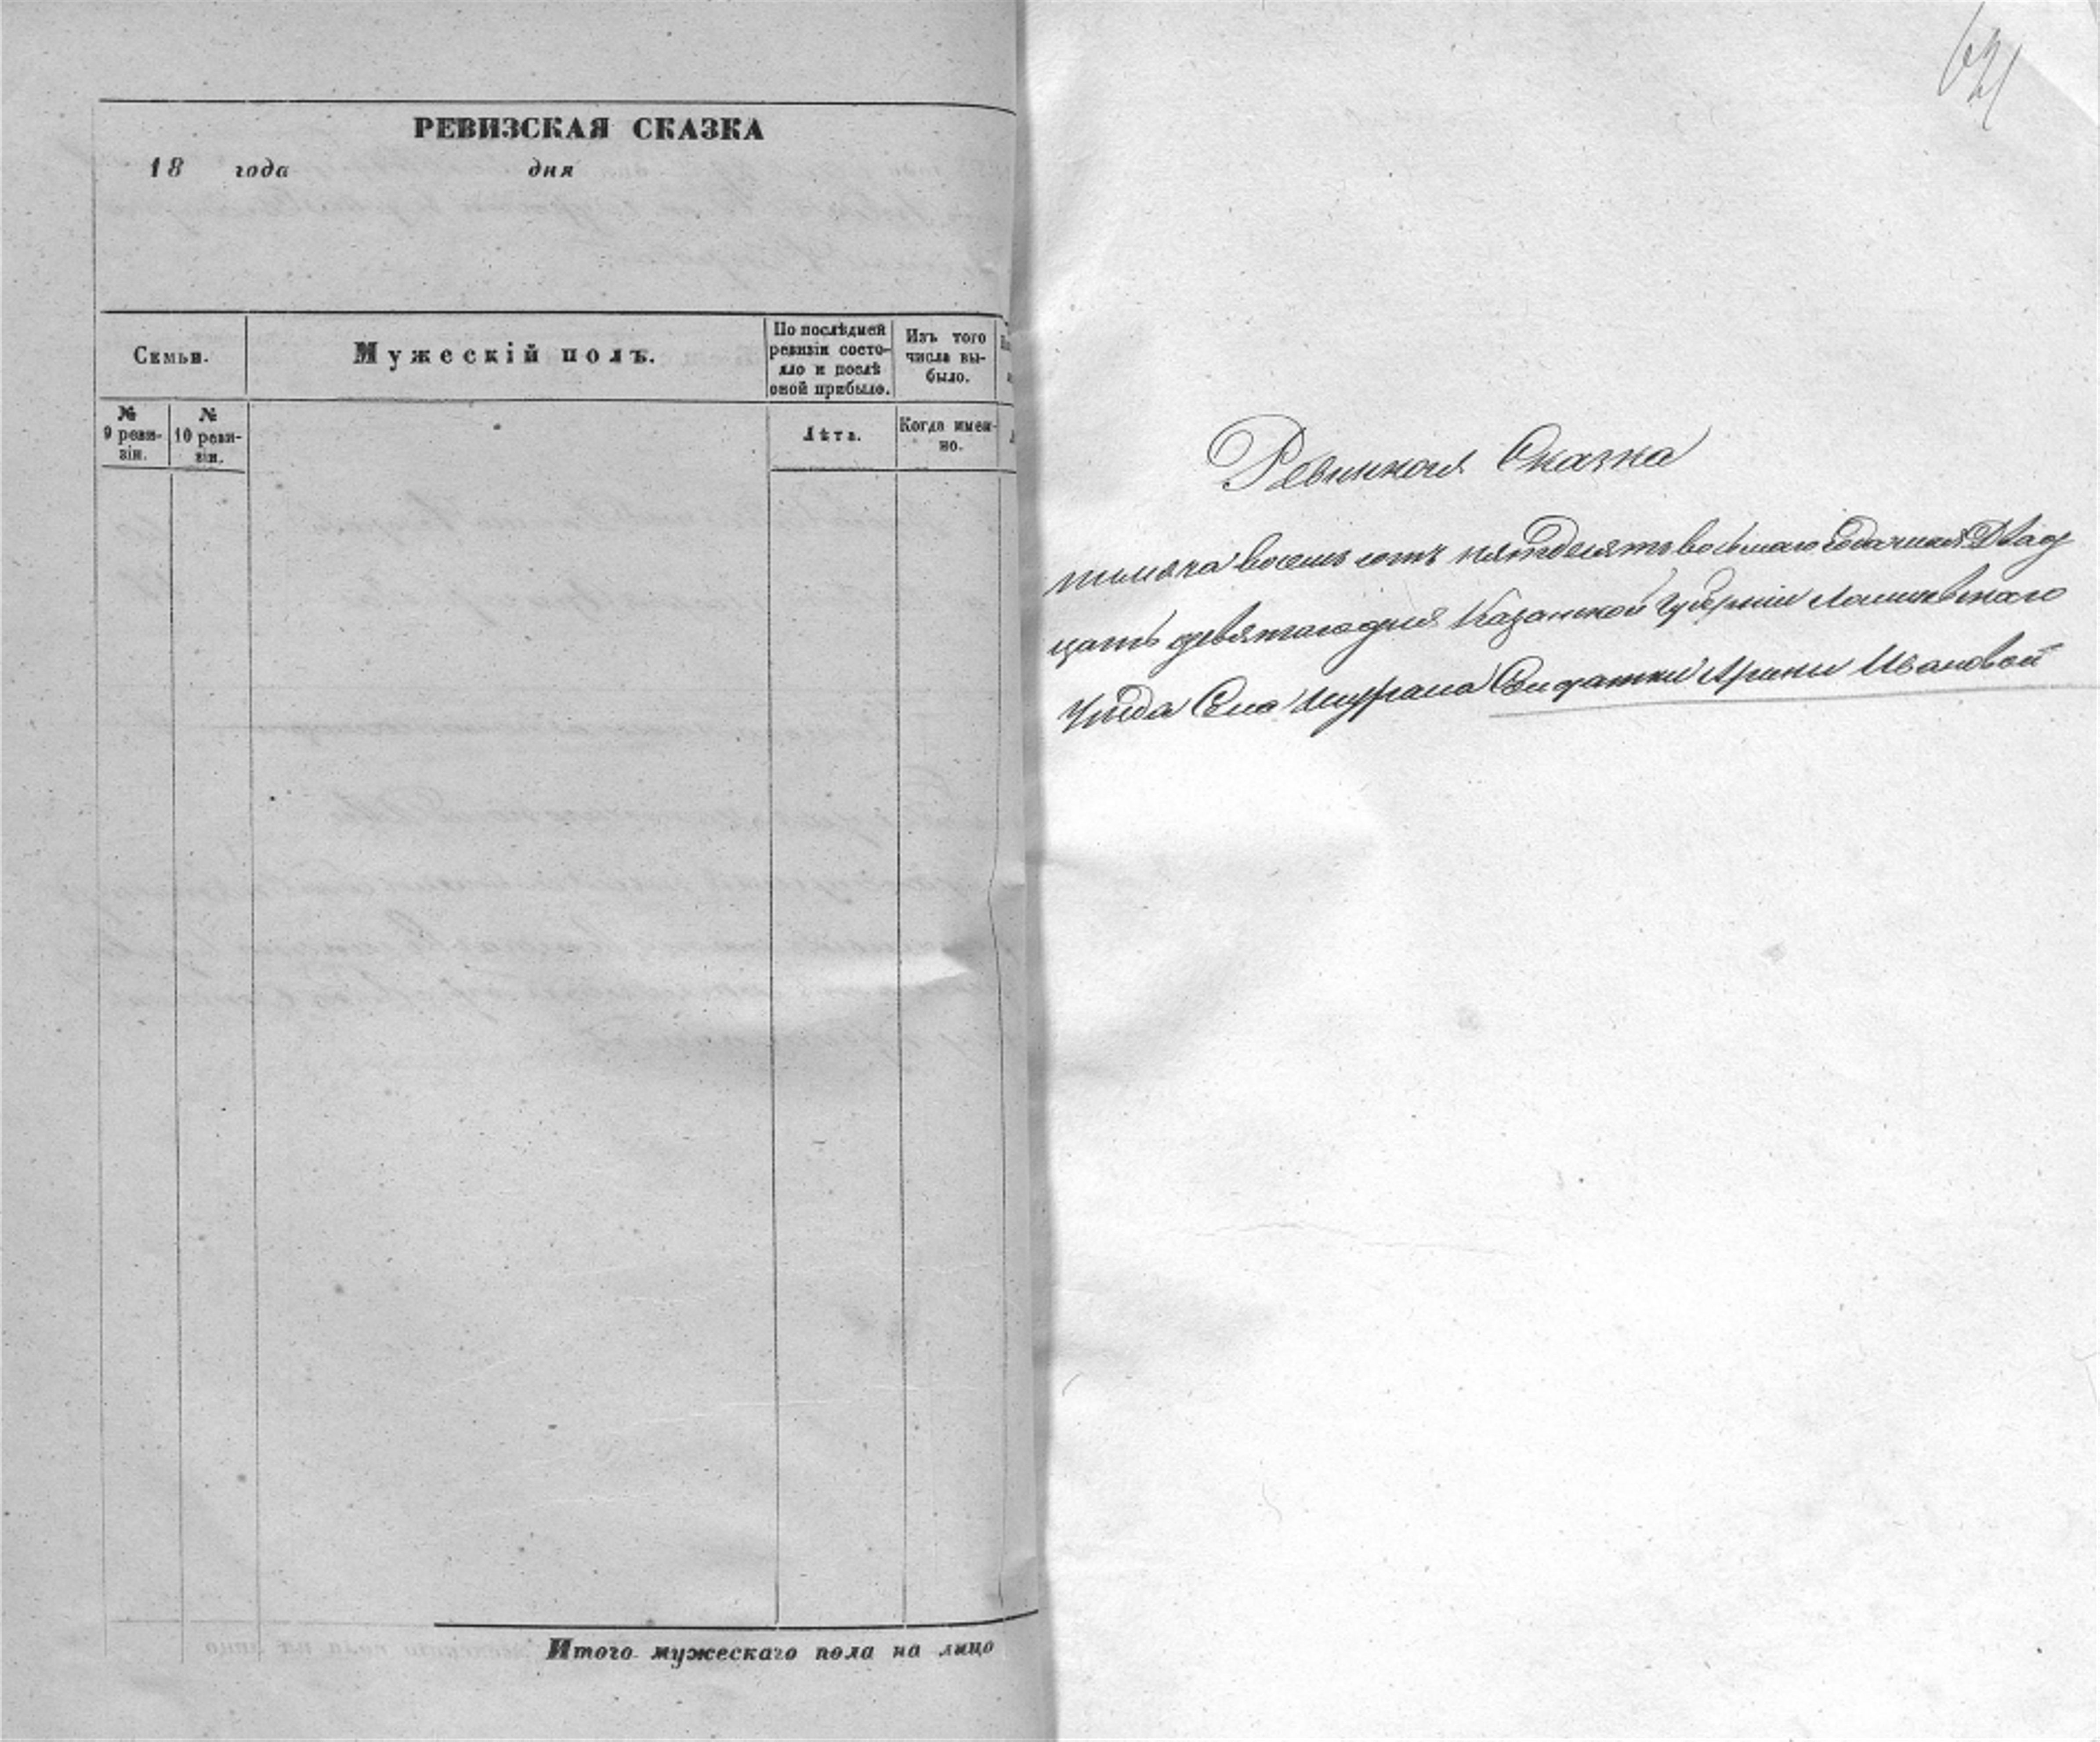 РЕВИЗСКАЯ СКАЗКА
18 года дня
Семьи.
Мужескій полъ.
По послѣдней ревизіи состо-
яло и послѣ оной прибыло.
Изъ того числа вы-
было.
№ 9 реви-
зіи.
№ 10 реви-
зіи.
Лѣта.
Когда имен-
но.
Итого мужескаго пола на лицо
Ревиская Сказка
тысяча восемь сотъ пятдесятъ восьмаго года Двад
цать девятаго дня Казанской Губерніи Лаишевскаго
Уѣзда Села Салдатки Ирины Ивановой